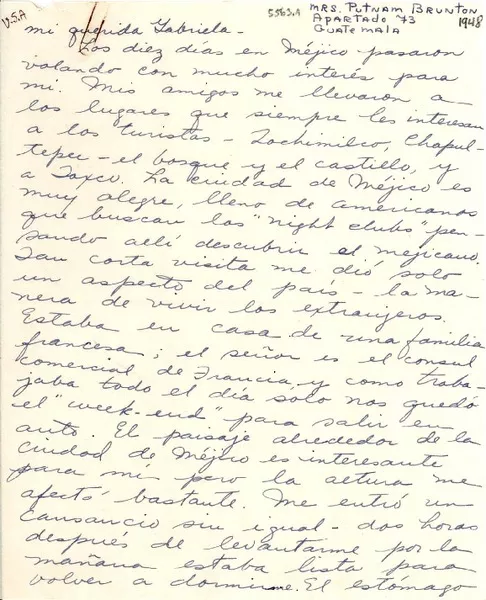 U.S.A
5563A MRS. PUTNAM BRUNTON
APARTADO 73 1948
GUATEMALA
mi querida Gabriela -
Los diez días en Méjico pasaron
volando con mucho interés para
mí. Mis amigos me llevaron a
los lugares que siempre les interesan
a los turistas - Xochimilco, Chapul-
tepec - el bosque y el castillo, y
a Taxco. La ciudad de Méjico es
muy alegre, lleno de americanos
que buscan los "night clubs" pen-
sando allí descubrir el mejicano.
Tan corta visita me dió solo
un aspecto del país - la ma-
nera de vivir los extranjeros.
Estaba en casa de una familia
francesa; el señor es el consul
comercial de Francia, y como traba-
jaba todo el día solo nos quedó
el "week-end" para salir en
auto. El paisaje alrededor de la
ciudad de Méjico es interesante
para mí pero la altura me
afectó bastante. Me entró un
cansancio sin igual - dos horas
después de levantarme por la
mañana estaba lista para
volver a dormirme. El estómago